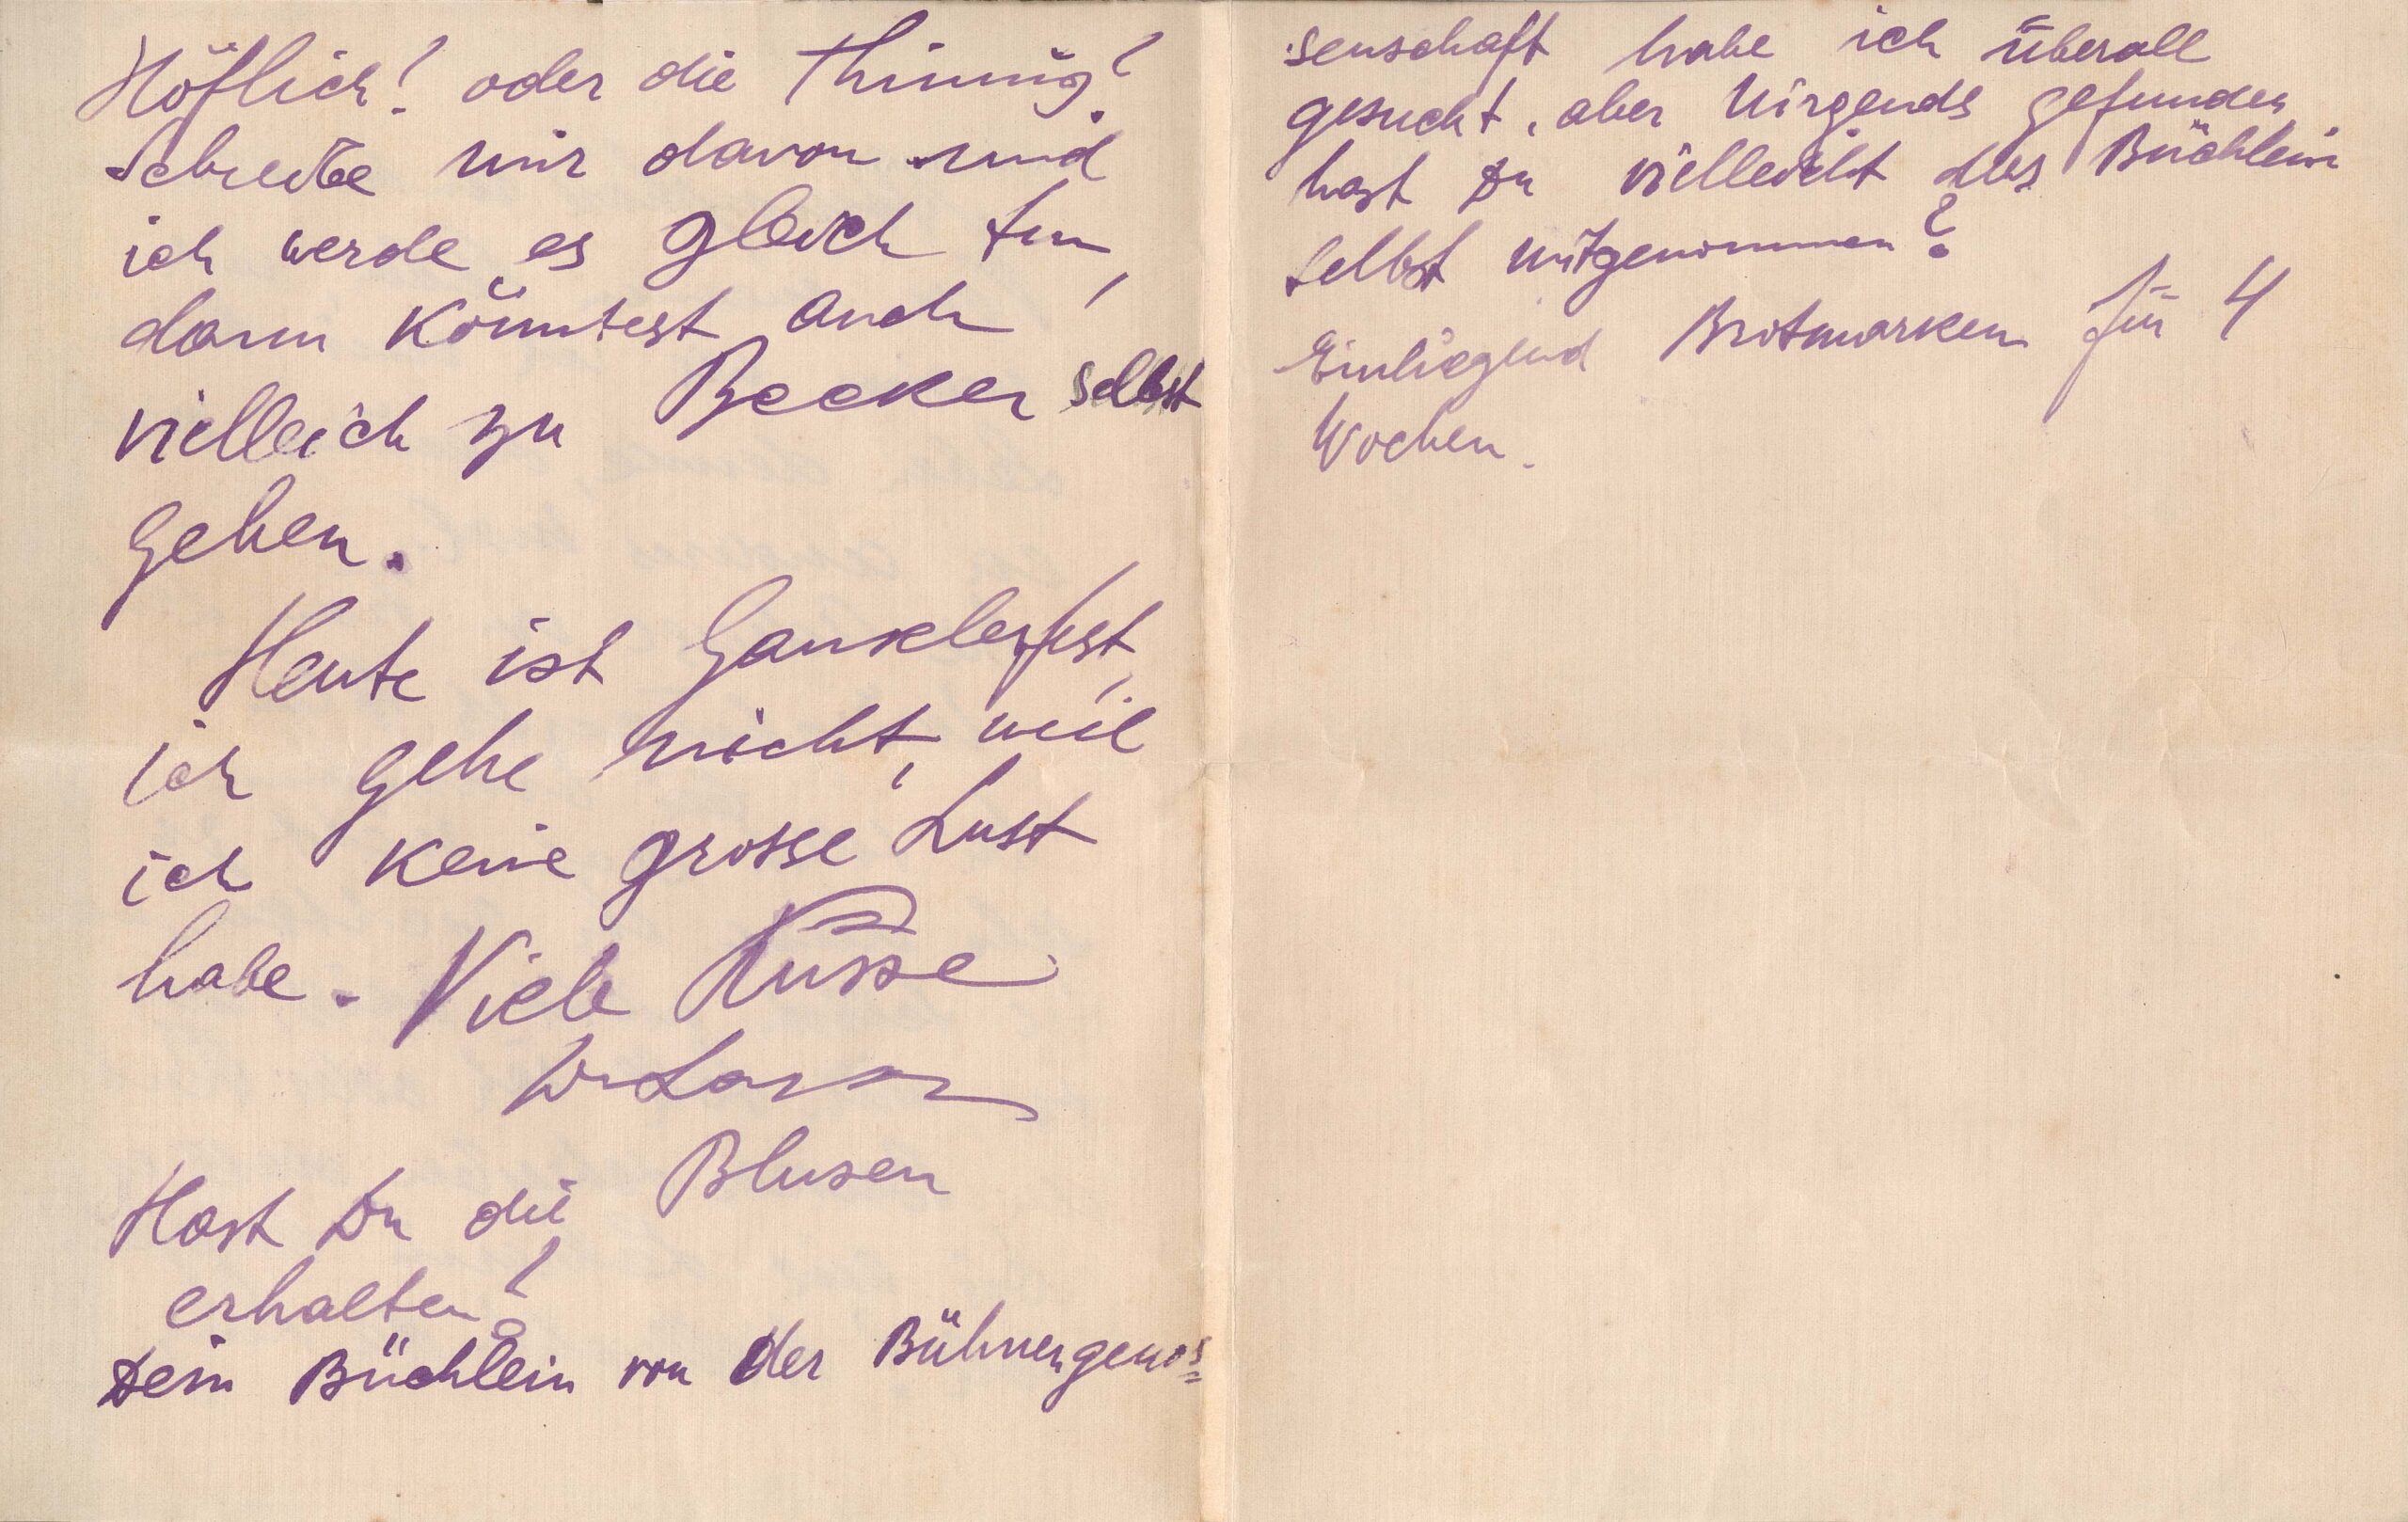 Höflich? oder die Thimig?
Schreibe mir davon und
ich werde es gleich tun,
dann könntest auch
vielleich zu Becker selbst
gehen.
Heute ist Gauklerfest,
ich gehe nicht, weil
ich keine grosse Lust
habe. Viele Küsse
Hast Du die Blusen
erhalten?
Dein Büchlein von der Bühnengenos=
senschaft habe ich überall
gesucht, aber nirgends gefunden
hast Du vielleicht das Büchlein
selbst mitgenommen?
Einliegend Brotmarken für 4
Wochen.